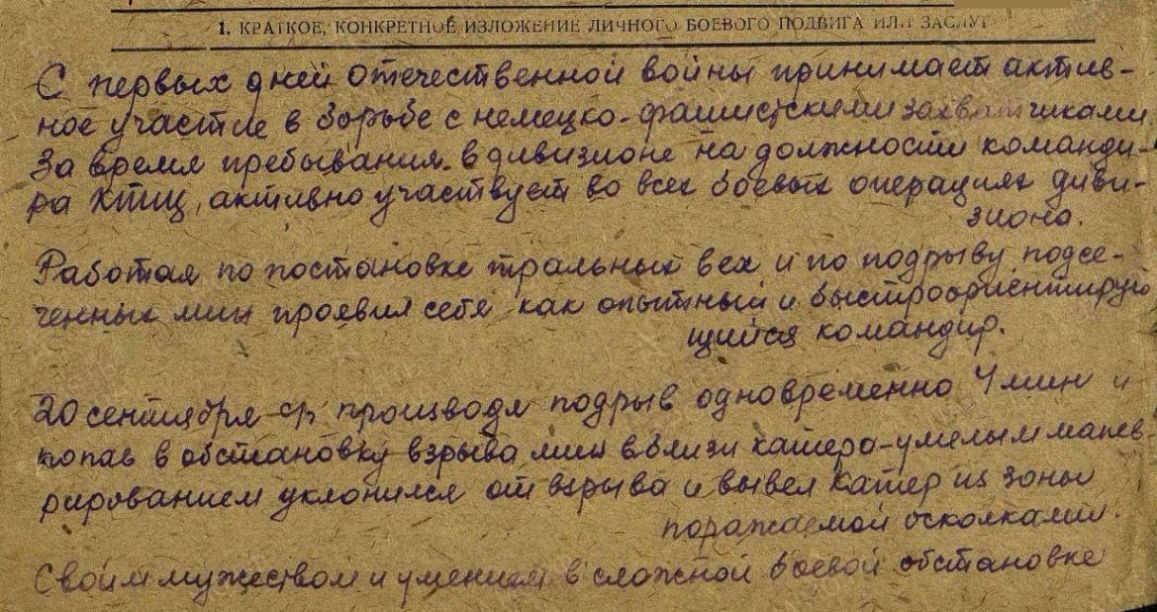 1. КРАТКОЕ, КОНКРЕТНОЕ ИЗЛОЖЕНИЕ ЛИЧНОГО БОЕВОГО ПОДВИГА ИЛИ ЗАСЛУГ
С первых дней Отечественной войны принимает актив-
ное участие в борьбе с немецко-фашистскими захватчиками
За время пребывания в дивизионе на должности команди-
ра КТЩ, активно участвует во всех боевых операциях диви-
зиона.
Работая по постановке тральных вех и по подрыву подсе-
ченных мин проявил себя как опытный и быстроориентирую
щийся командир.
20 сентября с/г производя подрыв одновременно 4 мин и
попав в обстановку взрыва мин вблизи катера-умелым манев
рированием уклонился от взрыва и вывел катер из зоны
поражаемой осколками.
Своим мужеством и умением в сложной боевой обстановке